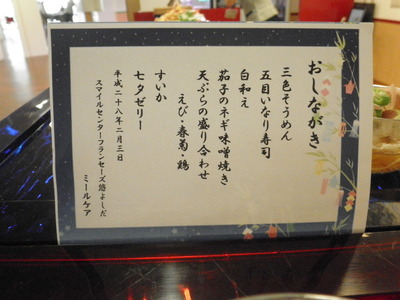 おしながき
三色そうめん
五目いなり寿司
白和え
茄子のネギ味噌焼き
天ぷらの盛り合わせ
えび・春菊・鶏
すいか
七夕ゼリー
平成二十八年二月三日
スマイルセンターフランセーズ悠よしだ
ミールケア